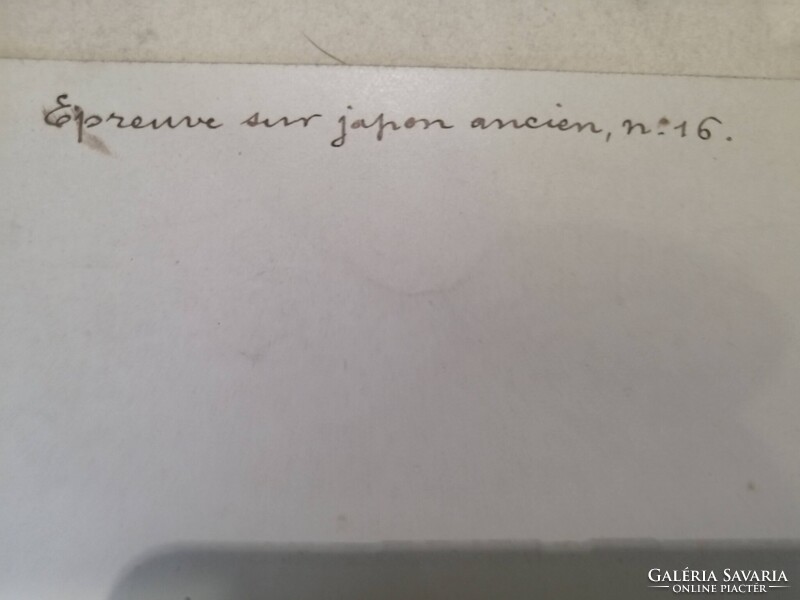 Epreuve sur japon ancien, nº 16.
GALÉRIA SAVARIA
ONLINE PIACTÉR